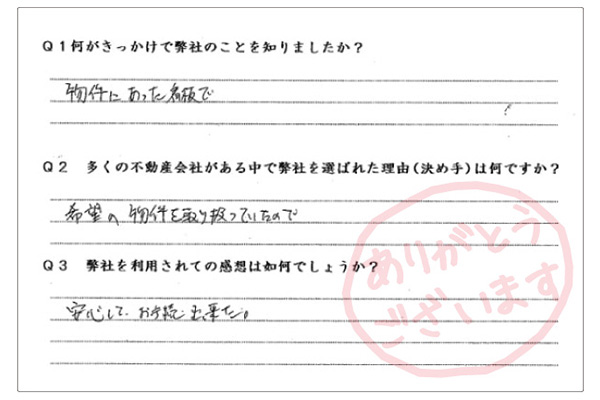 Q1何がきっかけで弊社のことを知りましたか?
物件にあった看板で
Q2 多くの不動産会社がある中で弊社を選ばれた理由(決め手)は何ですか?
希望の物件を取り扱っていたので
Q3 弊社を利用されての感想は如何でしょうか?
安心して、お手続出来た。
ありがとう
ございます